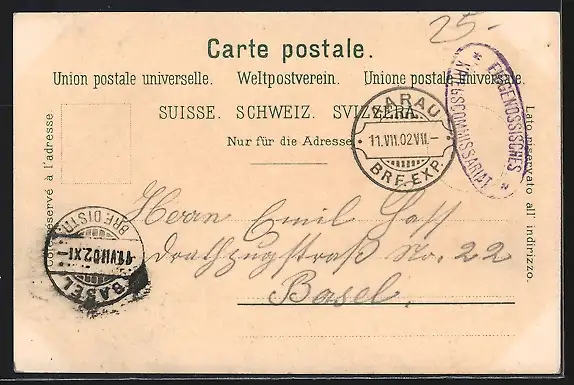 25.-
Carte postale.
Union postale universelle. Weltpostverein. Unione postale universale.
SUISSE. SCHWEIZ. SVIZZERA.
Nur für die Adresse
côté réservé à l'adresse
Lato riservato all' indirizzo.
AARAU
11.VII.02.VII.-
BRF. EXP.
* EIDGENÖSSISCHES *
KRIEGSCOMMISSARIAT
BRF. DISTR.
11.VII.02.XI-
BASEL
Herrn Emil
No. 22
Basel.